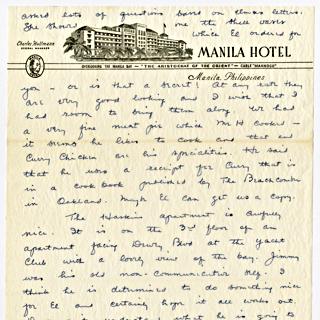 asked lots of questions based on Elmas letters.
She showed me the three vases
which El ordered for
Charles Huttmann
GENERAL MANAGER
MANILA HOTEL
OVERLOOKING THE MANILA BAY - "THE ARISTOCRAT OF THE ORIENT" - CABLE "MANHOLO"
Manila Philippines
you - or is that a secret! At any rate they
are very good looking and I wish that I
had room to bring them along. We had
a very fine meat pie which Mr H cooked -
it seems he likes to cook and that and
Curry Chicken are his specialties. He said
that he used a receipt for Curry that is
in a cook book published by The Beachcomber
in Oakland. Maybe El can get us a copy.
The Harkins apartment is awfully
nice. It is on the 3rd floor of an
apartment facing Dewey Blvd at the Yacht
Club with a lovely view of the bay. Jimmy
was his old non-communicative self. I
think he is determined to do something nice
for El and certainly hope it all works out.
what he is going to